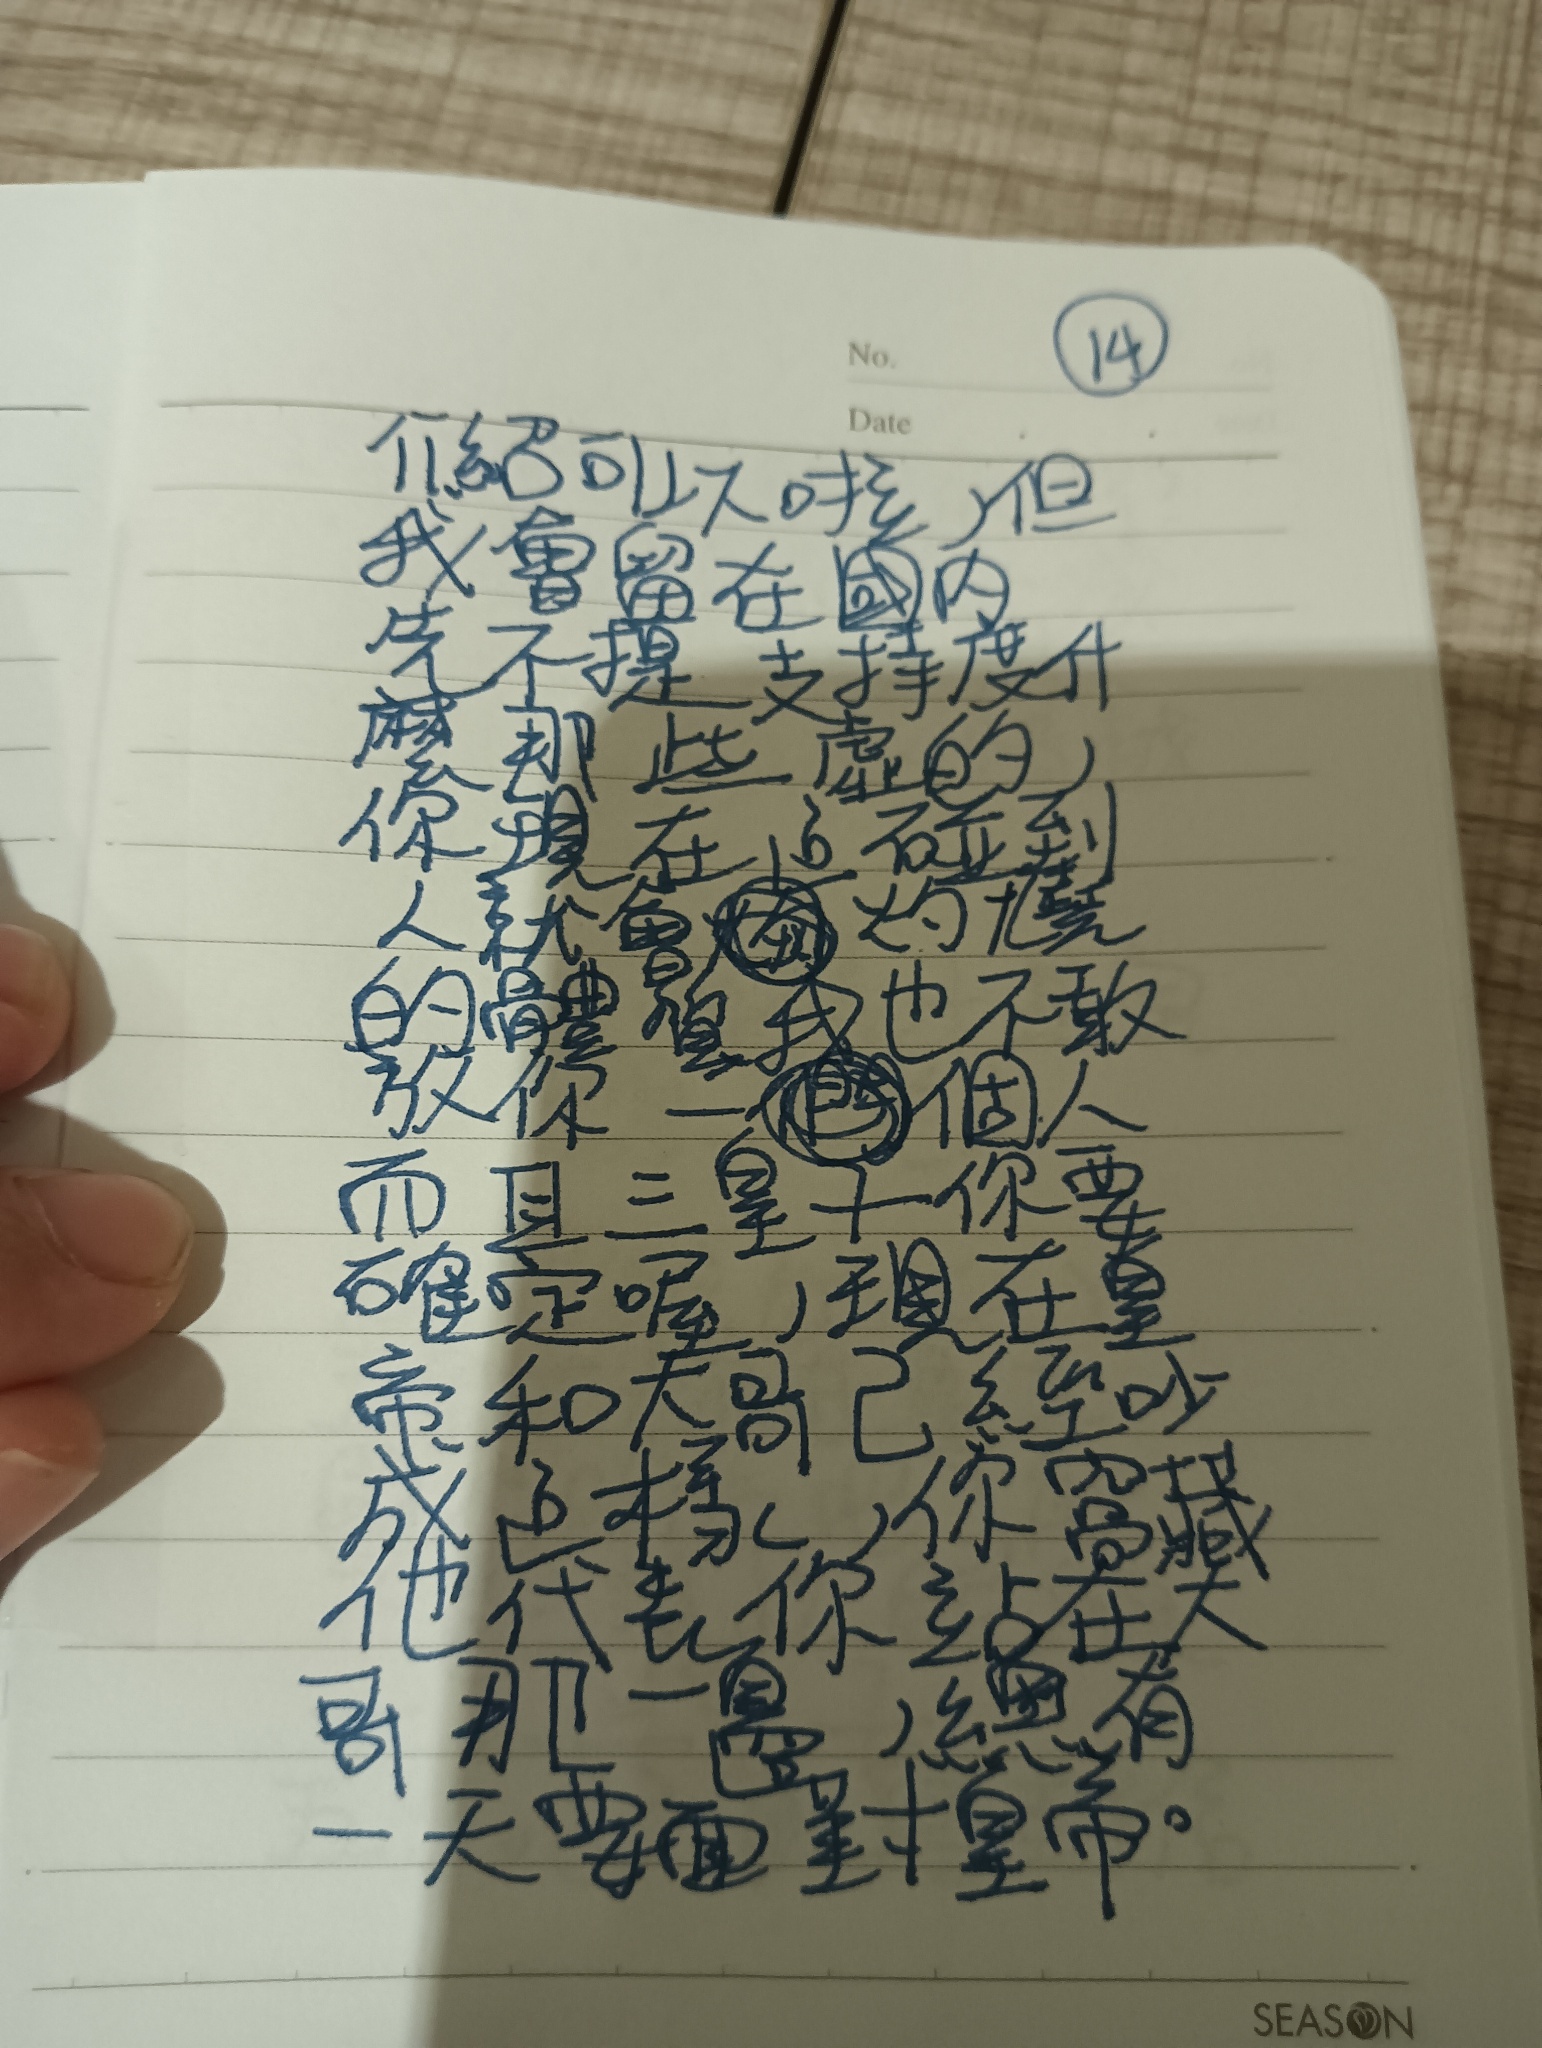 No. 14
Date
介紹可以啦，但
我會留在國內
先不提支持度什
麼那些虛的，
你現在這碰到
人就會灼燒
的體質我也不敢
放你一個人
而且三皇子你要
確定喔，現在皇
帝和大哥已經吵
成這樣，你窩藏
他代表你站在大
哥那一邊，總有
一天要面對皇帝。
SEASON